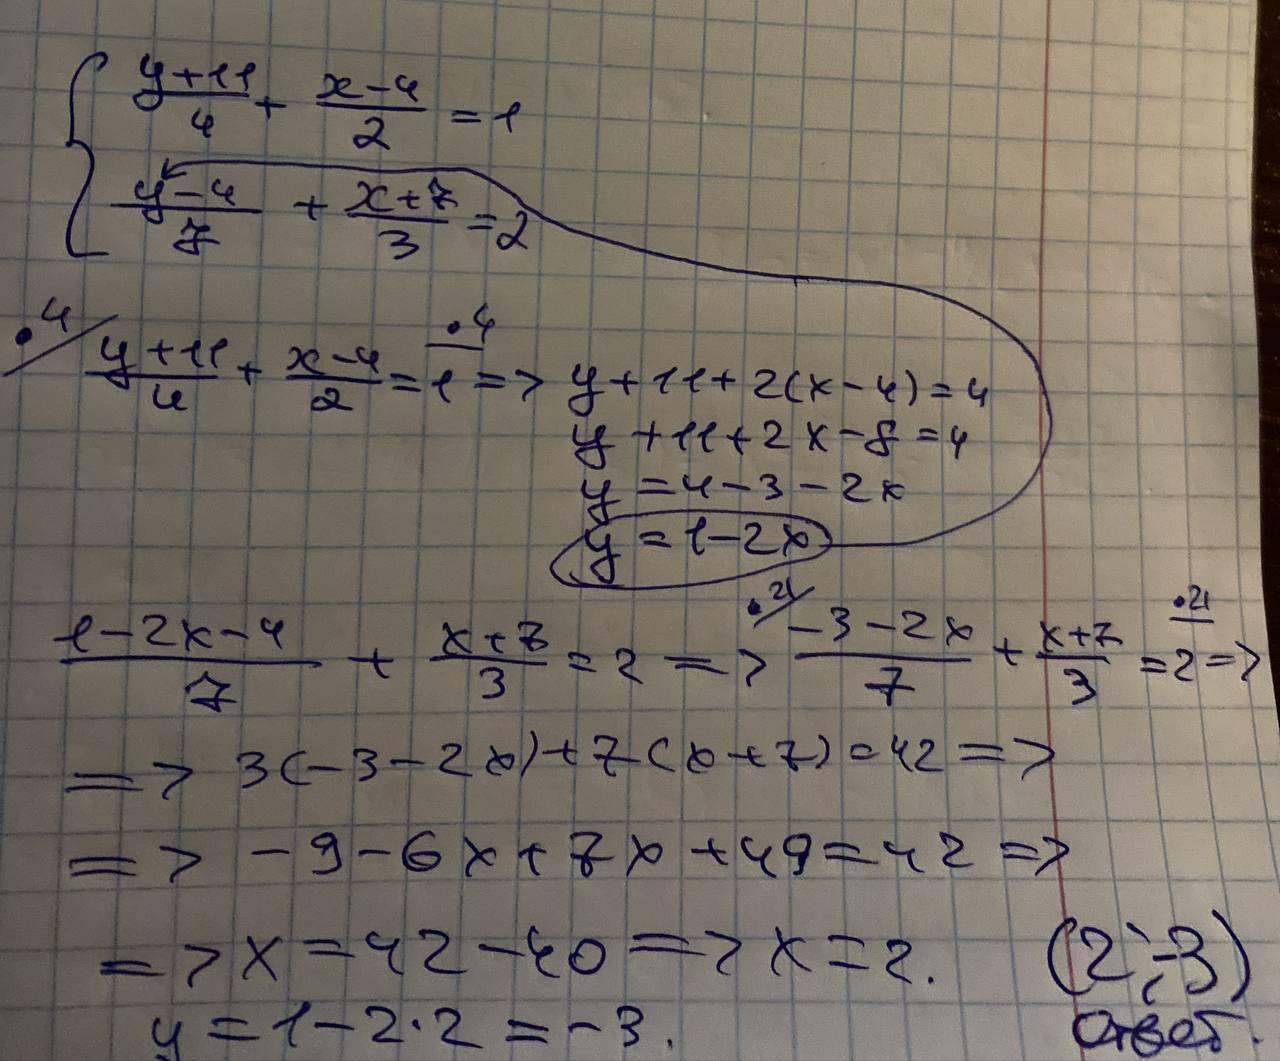 { (y+11)/4 + (x-4)/2 = 1
(y-4)/7 + (x+7)/3 = 2
·4/ (y+11)/4 + (x-4)/2 = 1 ·4 => y+11+2(x-4)=4
y+11+2x-8=4
y=4-3-2x
y=1-2x
(1-2x-4)/7 + (x+7)/3 = 2 => ·21/ (-3-2x)/7 + (x+7)/3 = 2 ·21 =>
=> 3(-3-2x)+7(x+7)=42 =>
=> -9-6x+7x+49=42 =>
=> x=42-40 => x=2. (2;-3)
y=1-2·2=-3. Ответ.